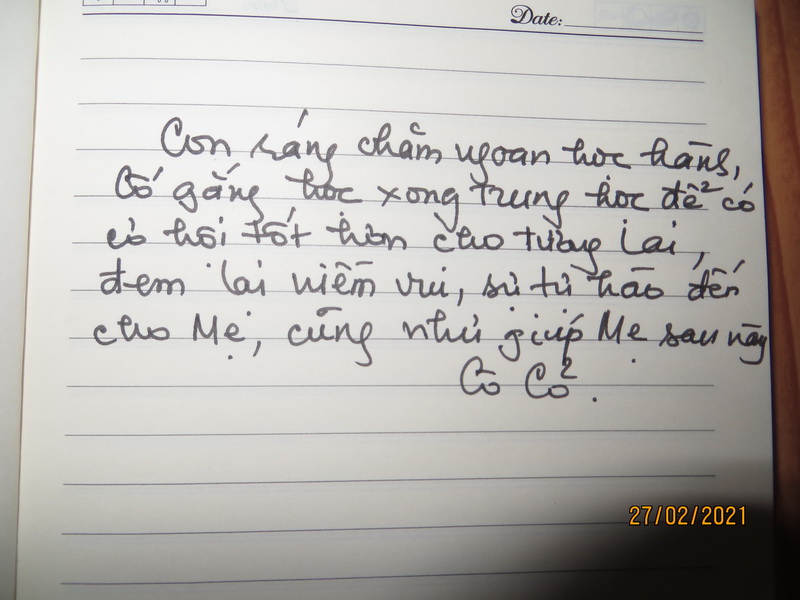 Date:
Con ráng chăm ngoan học hành,
Cố gắng học xong trung học để có
cơ hội tốt hơn cho tương lai,
đem lại niềm vui, sự tự hào đến
cho Mẹ, cũng như giúp Mẹ sau này
Cô Cơ.
27/02/2021